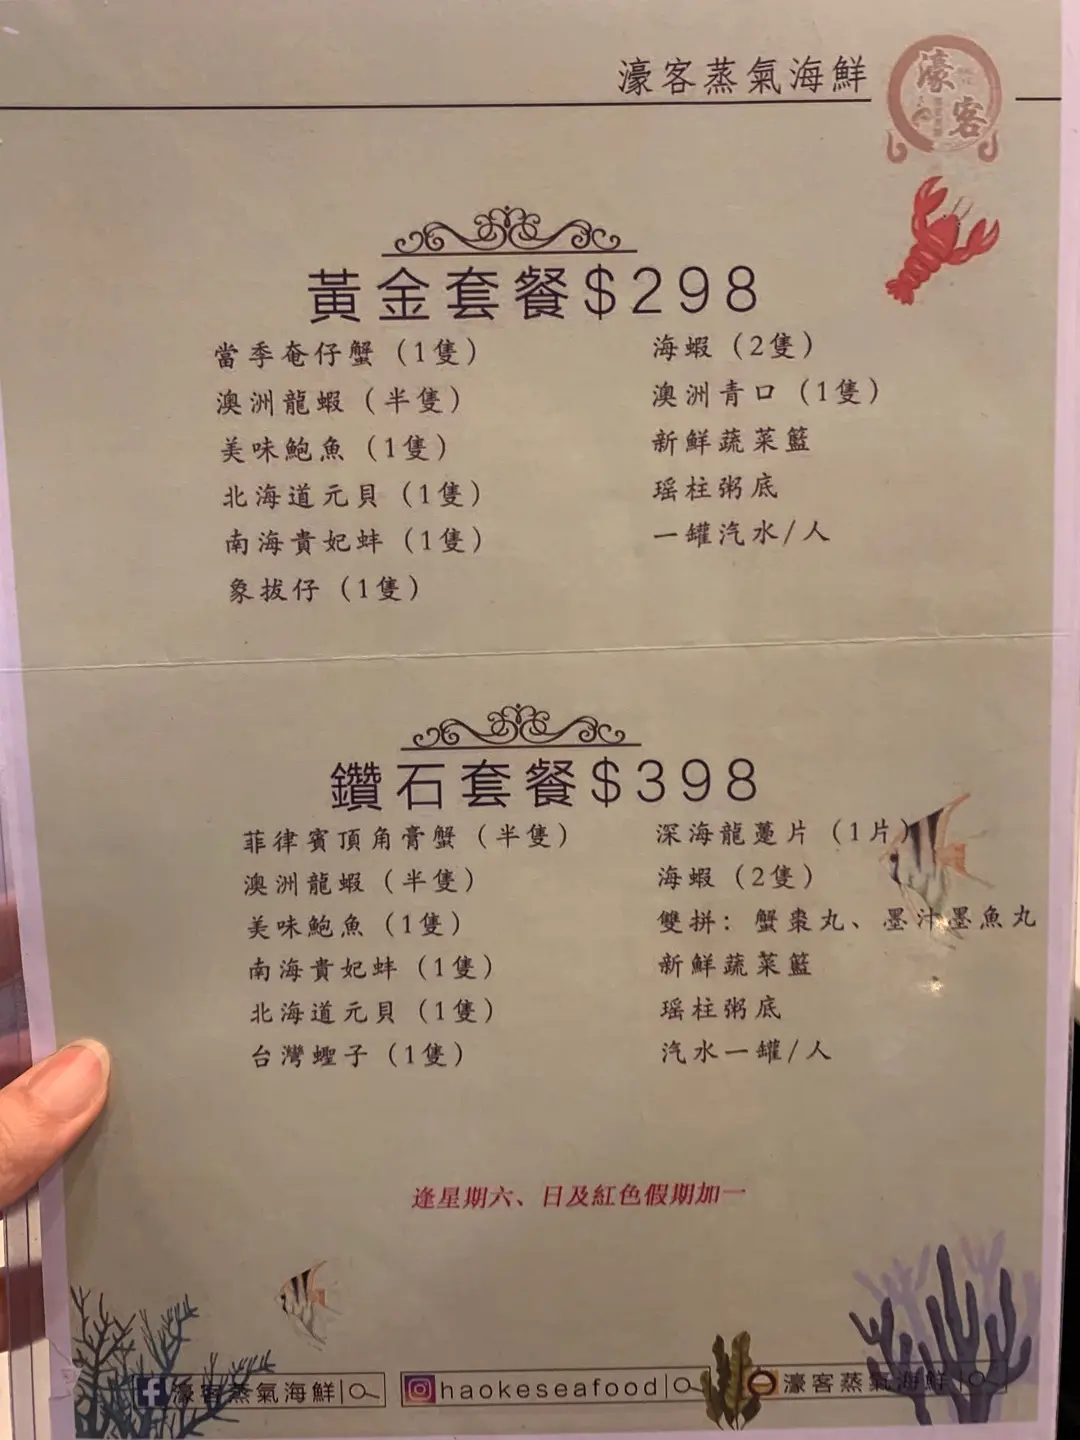 濠客蒸氣海鮮
濠
客
黃金套餐$298
當季奄仔蟹（1隻）
澳洲龍蝦（半隻）
美味鮑魚（1隻）
北海道元貝（1隻）
南海貴妃蚌（1隻）
象拔仔（1隻）
海蝦（2隻）
澳洲青口（1隻）
新鮮蔬菜籃
瑶柱粥底
一罐汽水/人
鑽石套餐$398
菲律賓頂角膏蟹（半隻）
澳洲龍蝦（半隻）
美味鮑魚（1隻）
南海貴妃蚌（1隻）
北海道元貝（1隻）
台灣蟶子（1隻）
深海龍躉片（1片）
海蝦（2隻）
雙拼：蟹棗丸、墨汁墨魚丸
新鮮蔬菜籃
瑶柱粥底
汽水一罐/人
逢星期六、日及紅色假期加一
濠客蒸氣海鮮
haokeseafood
濠客蒸氣海鮮